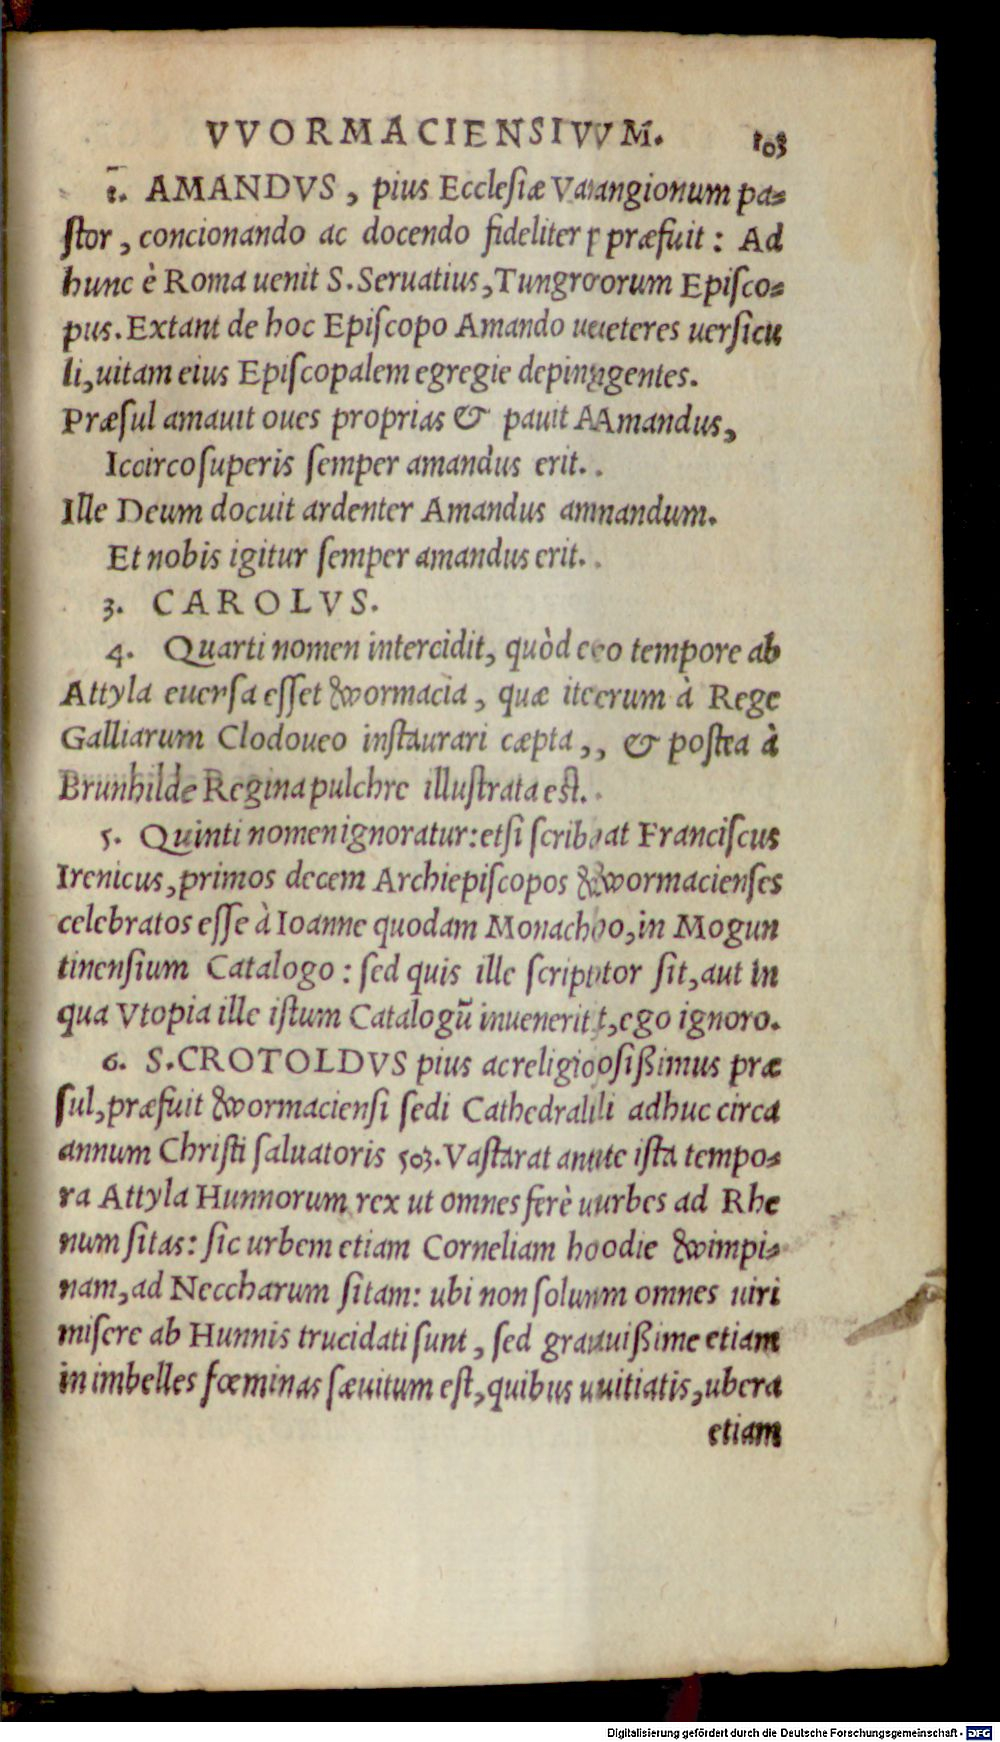 VVORMACIENSIVM. 103
2. AMANDVS, pius Ecclesiæ Vangionum pa-
stor, concionando ac docendo fideliter præfuit: Ad
hunc è Roma uenit S. Seruatius, Tungrorum Episco-
pus. Extant de hoc Episcopo Amando ueteres uersicu
li, uitam eius Episcopalem egregie depingentes.
Præsul amauit oues proprias & pauit Amandus,
Iccirco superis semper amandus erit.
Ille Deum docuit ardenter Amandus amandum.
Et nobis igitur semper amandus erit.
3. CAROLVS.
4. Quarti nomen intercidit, quòd eo tempore ab
Attyla euersa esset Wormacia, quæ iterum à Rege
Galliarum Clodoueo instaurari cæpta, & postea à
Brunhilde Regina pulchre illustrata est.
5. Quinti nomen ignoratur: etsi scribat Franciscus
Irenicus, primos decem Archiepiscopos Wormacienses
celebratos esse à Ioanne quodam Monacho, in Mogun
tinensium Catalogo: sed quis ille scriptor sit, aut in
qua Vtopia ille istum Catalogū inuenerit, ego ignoro.
6. S. CROTOLDVS pius ac religiosißimus præ
sul, præfuit Wormaciensi sedi Cathedrali adhuc circa
annum Christi saluatoris 503. Vastarat ante ista tempo-
ra Attyla Hunnorum rex ut omnes ferè urbes ad Rhe
num sitas: sic urbem etiam Corneliam hodie Wimpi-
nam, ad Neccharum sitam: ubi non solum omnes uiri
misere ab Hunnis trucidati sunt, sed grauißime etiam
in imbelles fœminas sæuitum est, quibus uitiatis, ubera
etiam
Digitalisierung gefördert durch die Deutsche Forschungsgemeinschaft - DFG